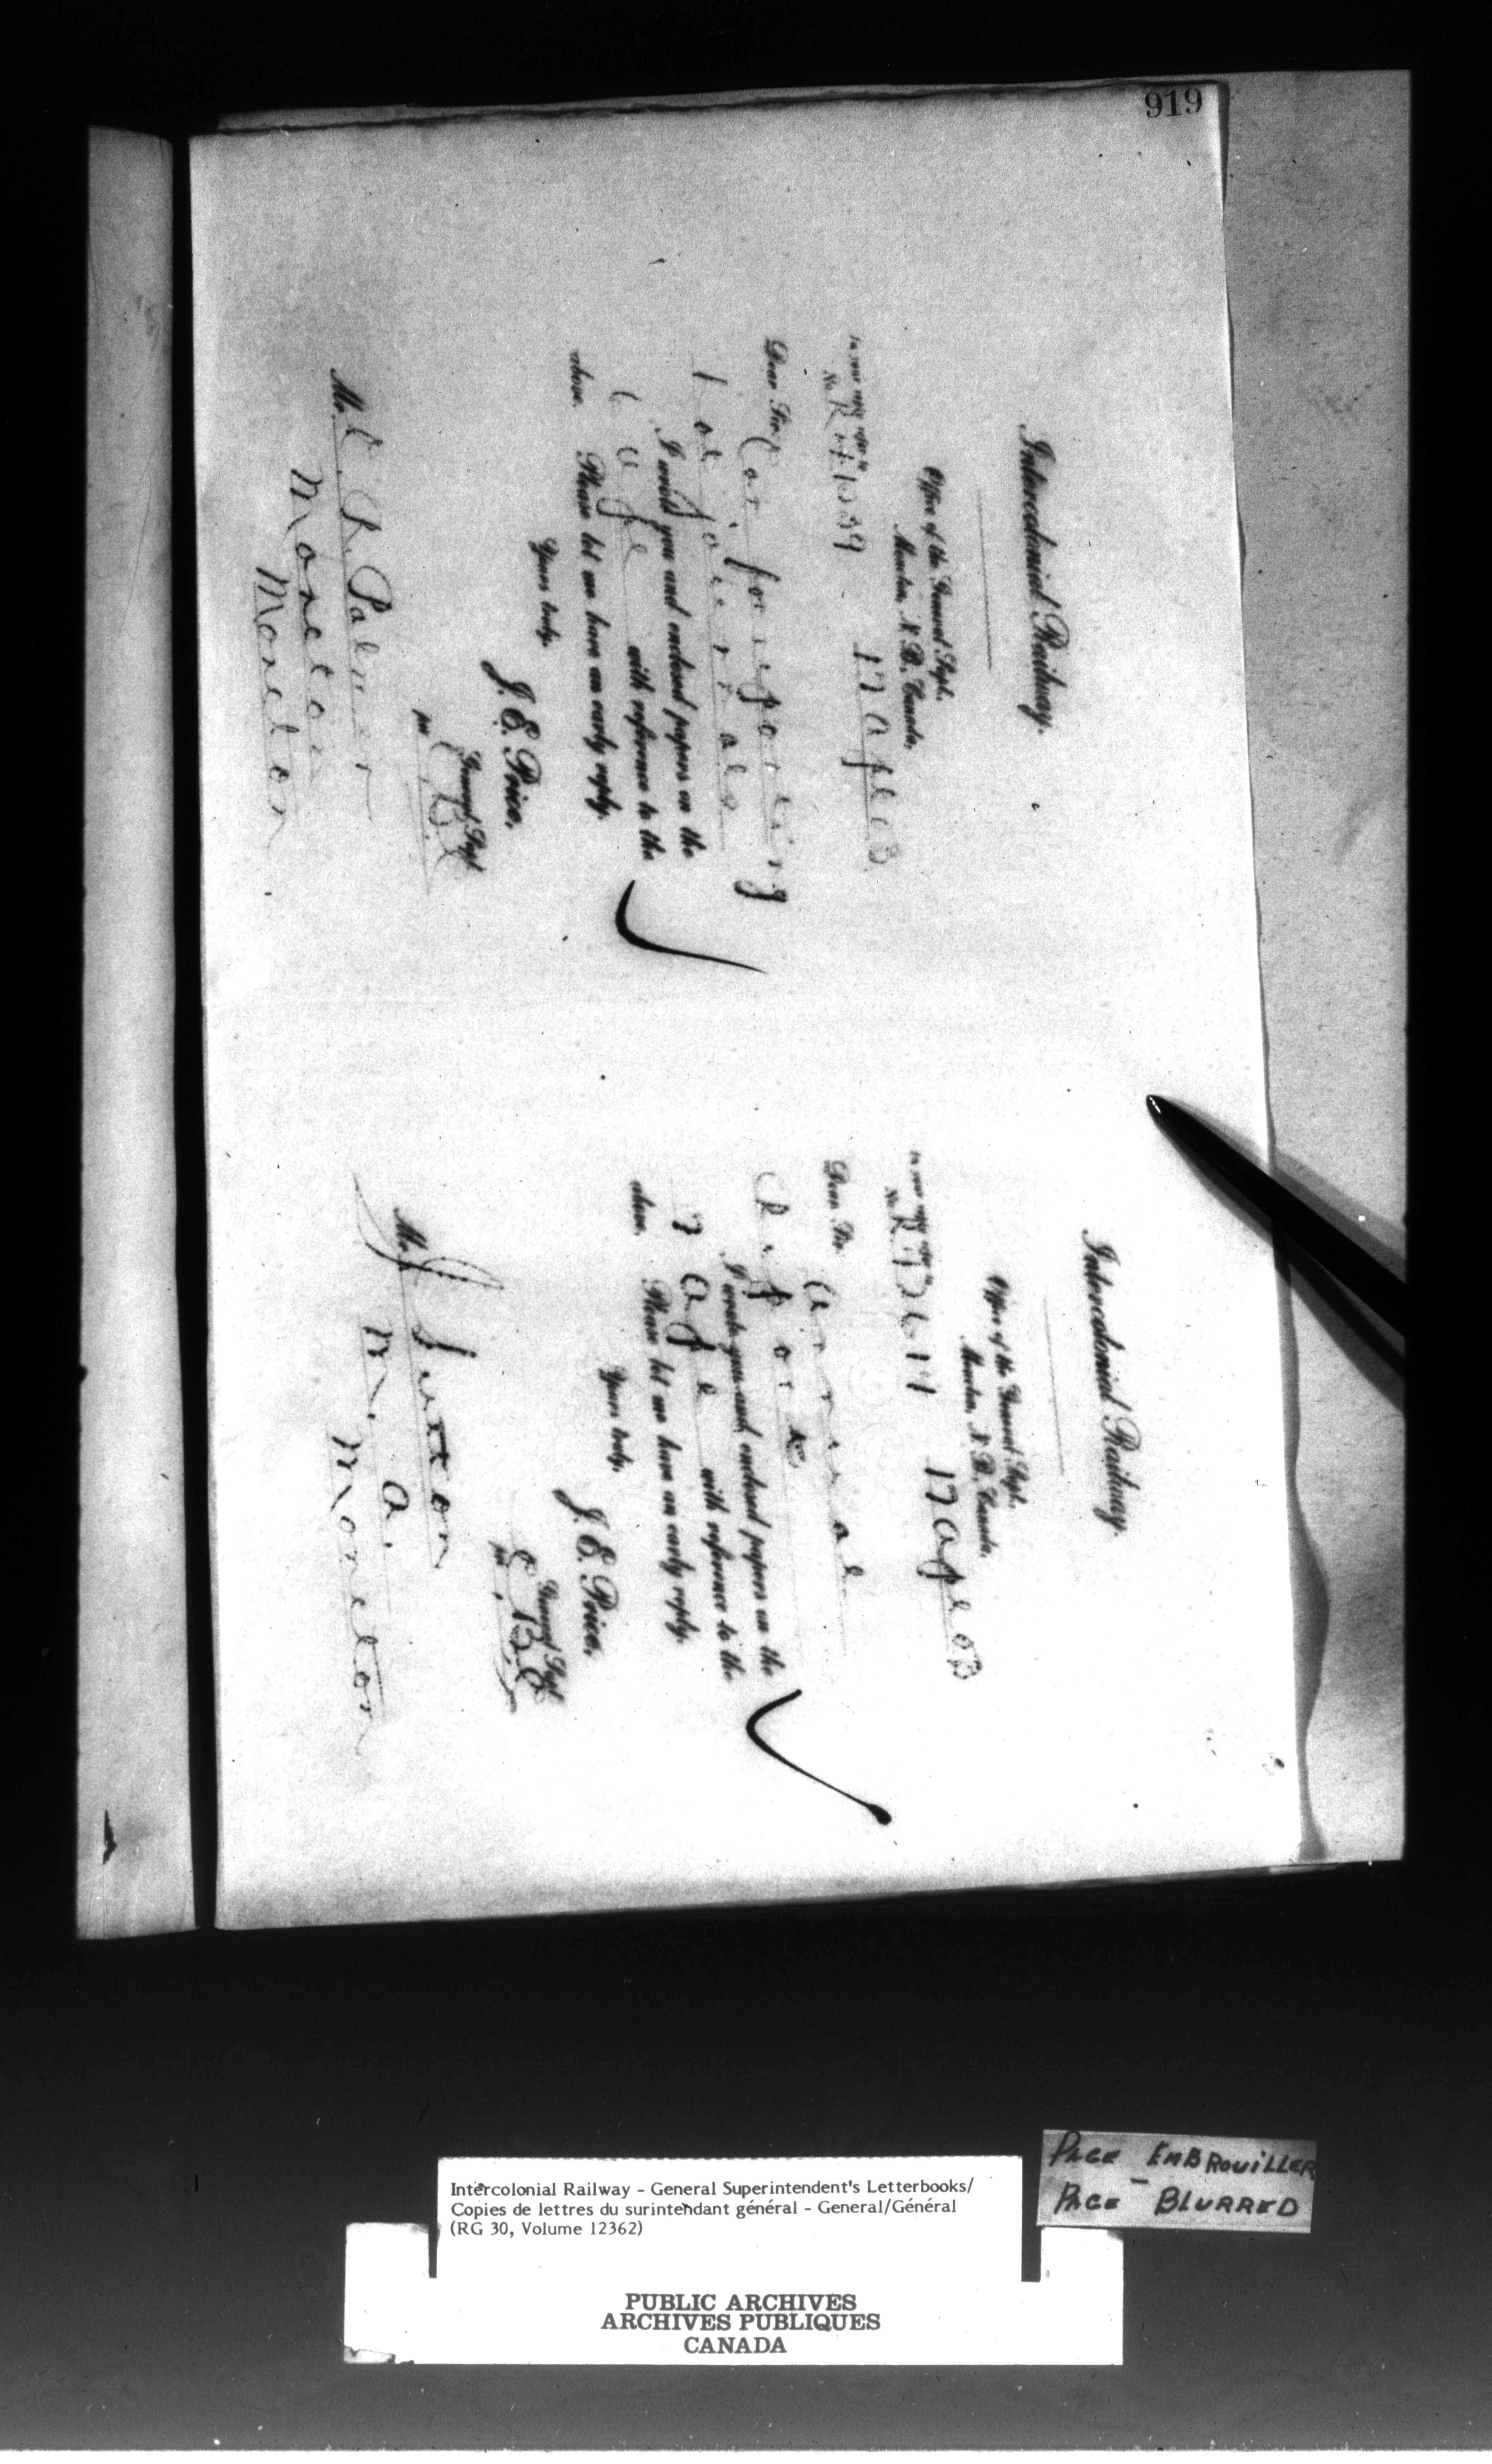 919
Intercolonial Railway.
Office of the General Supt.
Moncton, N. B. Canada,
17 Apl 03
In your reply refer to
No.
Dear Sir,
Car for reporting
I wrote you and enclosed papers on the
6 Apl with reference to the
above. Please let me have an early reply.
Yours truly,
J. E. Price,
General Supt
per
Mr. Palmer
Moncton
Moncton
Intercolonial Railway.
Office of the General Supt.
Moncton, N. B. Canada,
17 Apl 03
In your reply refer to
No.
Dear Sir,
Annual
Report
I wrote you and enclosed papers on the
7 Apl with reference to the
above. Please let me have an early reply.
Yours truly,
J. E. Price,
General Supt
per
Mr. J Sutton
M. A.
Moncton
PAGE EMBROUILLER
PAGE - BLURRED
Intercolonial Railway - General Superintendent's Letterbooks/
Copies de lettres du surintendant général - General/Général
(RG 30, Volume 12362)
PUBLIC ARCHIVES
ARCHIVES PUBLIQUES
CANADA